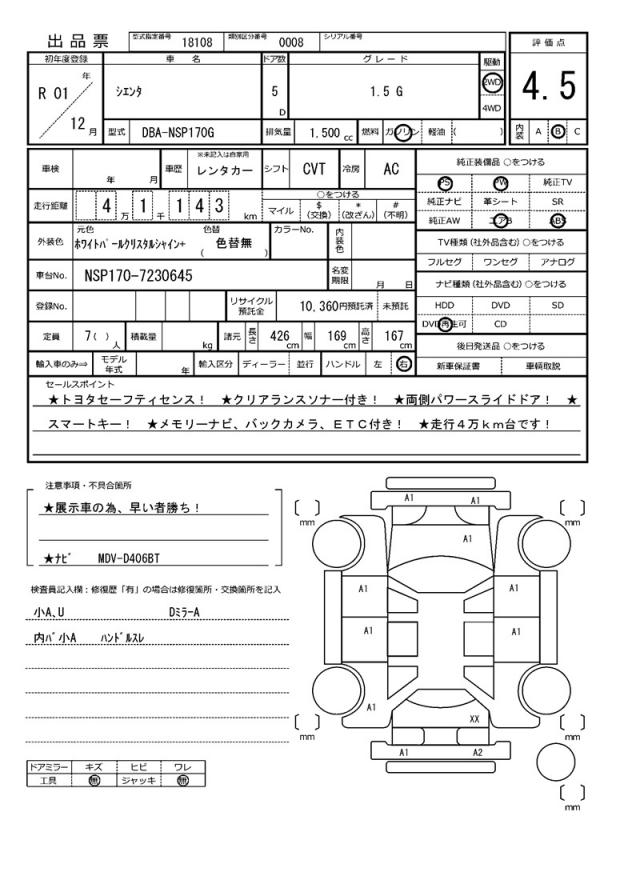 出品票 型式指定番号 18108 類別区分番号 0008 シリアル番号
評価点
4.5
内装 A B C
初年度登録 車名 ドア数 グレード 駆動
R 01 年 12 月 シエンタ 5 D 1.5 G 2WD 4WD
型式 DBA-NSP170G 排気量 1.500 cc 燃料 ガソリン 軽油 ( )
車検 年 月 車歴 ※未記入は自家用 レンタカー シフト CVT 冷房 AC
走行距離 4 万 1 千 1 4 3 km ○をつける
マイル $(交換) *(改ざん) #(不明)
外装色 元色 ホワイトパールクリスタルシャイン+ 色替 ( 色替無 ) カラーNo. 内装色
車台No. NSP170-7230645 名変期限 月 日
登録No. リサイクル預託金 10,360円預託済 未預託
定員 7( ) 人 積載量 kg 諸元 長さ 426 cm 幅 169 cm 高さ 167 cm
輸入車のみ⇒ モデル年式 年 輸入区分 ディーラー 並行 ハンドル 左 右
純正装備品 ○をつける
PS PW 純正TV
純正ナビ 革シート SR
純正AW エアB ABS
TV種類(社外品含む) ○をつける
フルセグ ワンセグ アナログ
ナビ種類(社外品含む) ○をつける
HDD DVD SD
DVD再生可 CD
後日発送品 ○をつける
新車保証書 車輌取説
セールスポイント
★トヨタセーフティセンス! ★クリアランスソナー付き! ★両側パワースライドドア! ★
スマートキー! ★メモリーナビ、バックカメラ、ETC付き! ★走行4万km台です!
注意事項・不具合箇所
★展示車の為、早い者勝ち!
★ナビ MDV-D406BT
検査員記入欄:修復歴「有」の場合は修復箇所・交換箇所を記入
小A、U DミラーA
内バ小A ハンドルスレ
ドアミラー キズ ヒビ ワレ
工具 無 ジャッキ 無
A1 A1
[ ] mm [ ] mm
A1
A1 A1
A1 A1
A1
XX
[ ] mm [ ] mm
A1 A2
[ ] mm